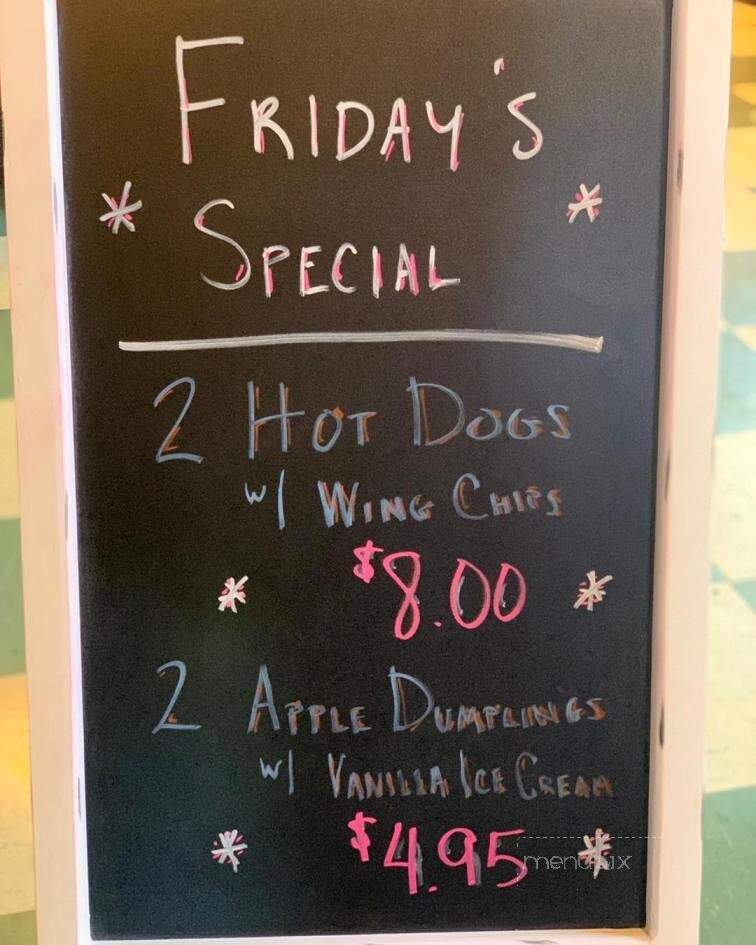 FRIDAY'S
* SPECIAL *
2 HOT DOGS
w/ WING CHIPS
* $8.00 *
2 APPLE DUMPLINGS
w/ VANILLA ICE CREAM
* $4.95 *
menupix